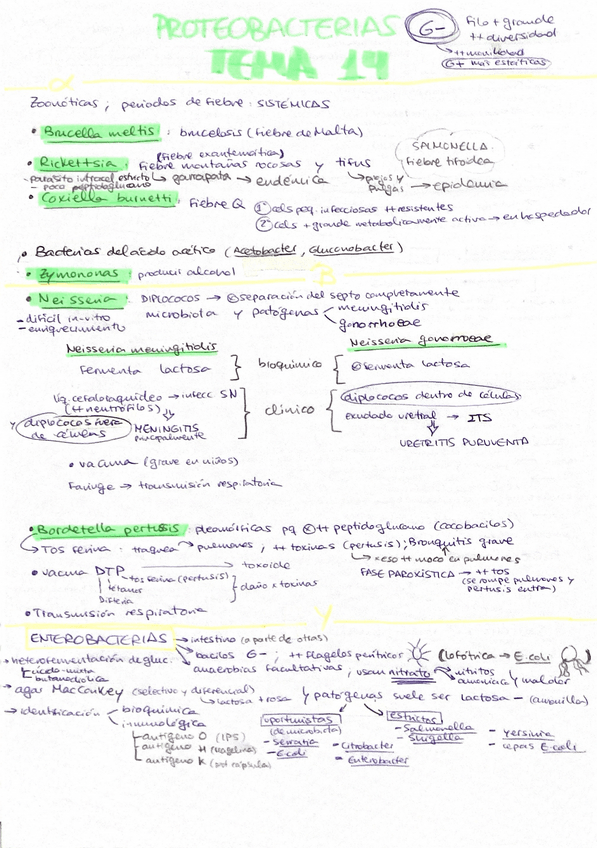 PROTEOBACTERIAS
TEMA 14
G-
Filo + grande
++ diversidad
++ movilidad
G+ más estáticas
α
Zoonóticas; periodos de fiebre: SISTÉMICAS
• Brucella meltis: brucelosis (fiebre de Malta)
SALMONELLA:
fiebre tifoidea
(fiebre exantemática)
• Rickettsia: fiebre montañas rocosas y tifus
- parásito intracel. estricto
- poco peptidoglucano
garrapata → endémica
piojos y pulgas → epidemia
• Coxiella burnetti: Fiebre Q
① cels peq. infecciosas ++ resistentes
② cels + grande metabolicamente activa → en hospedador
• Bacterias del ácido acético (Acetobacter, Gluconobacter)
• Zymononas: producir alcohol
β
• Neisseria: DIPLOCOCOS → separación del septo completamente
- difícil in-vitro
- enriquecimiento
microbiota y patógenas
meningitidis
gonorrhoeae
Neisseria meningitidis
Neisseria gonorroeae
Fermenta lactosa
bioquímico
fermenta lactosa
líq. cefaloraquídeo → infecc. SN
(++ neutrófilos)
y diplococos fuera de células
MENINGITIS
principalmente
clínico
diplococos dentro de células
exudado uretral → ITS
URETRITIS PURUVENTA
• vacuna (grave en niños)
Faringe → transmisión respiratoria
• Bordetella pertusis: pleomórficas pq ++ peptidoglucano (cocobacilos)
Tos ferina: tráquea → pulmones, ++ toxinas (pertusis); Bronquitis grave
→ xeso ++ moco en pulmones
• vacuna DTP → toxoide
tos ferina (pertusis)
tétanos
Difteria
daño x toxinas
FASE PAROXÍSTICA → ++ tos
(se rompe pulmones y
pertusis entra)
• Transmisión respiratoria
γ
ENTEROBACTERIAS → intestino (aparte de otras)
bacilos G-; ++ flagelos perítricos
(lofótrica → E.coli
anaerobias facultativas, usan nitrato
nitritos
amoniaco
y mal olor
→ heterofermentación de gluc.
ácido-mixta
butanediólica
→ agar MacConkey (selectivo y diferencial)
lactosa + rosa y patógenas suele ser lactosa - (amarilla)
→ identificación
bioquímica
inmunológica
antígeno O (LPS)
antígeno H (flagelina)
antígeno K (pol cápsula)
oportunistas
(de microbiota)
- Serratia
- E.coli
- Citrobacter
- Enterobacter
estrictos
- Salmonella
- Shigella
- Yersinia
- cepas E.coli